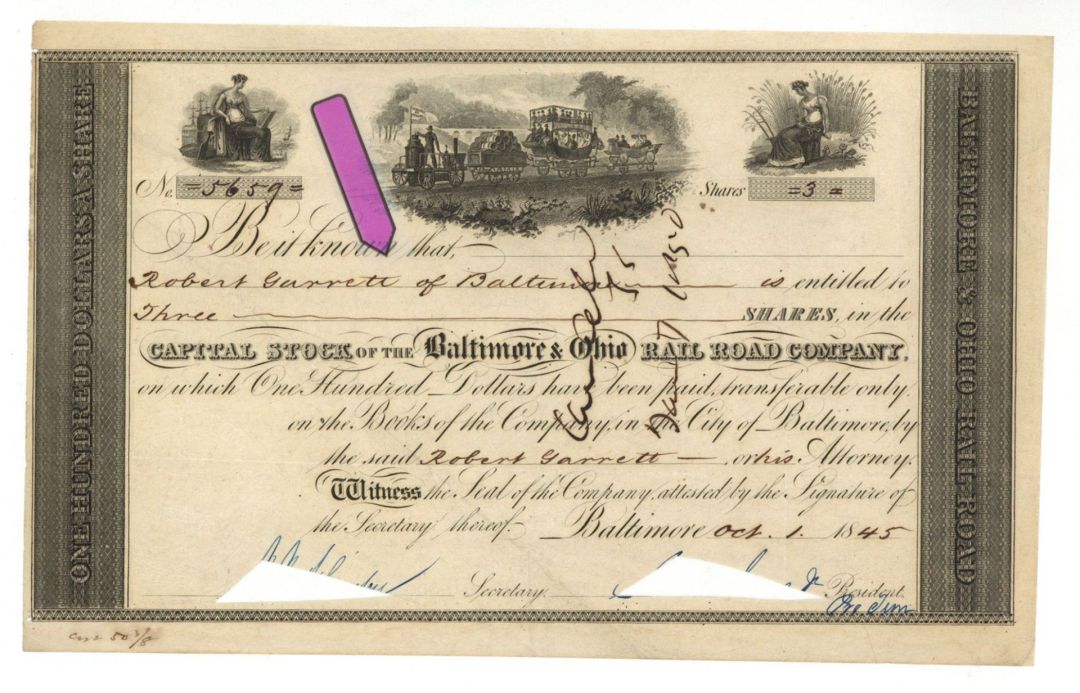 ONE HUNDRED DOLLARS A SHARE
BALTIMORE & OHIO RAIL-ROAD
No. =5659=
Shares =3=
Be it known that,
Robert Garrett of Baltimore is entitled to
Three SHARES, in the
CAPITAL STOCK OF THE Baltimore & Ohio RAIL ROAD COMPANY,
on which One Hundred Dollars have been paid, transferable only
on the Books of the Company, in the City of Baltimore, by
the said Robert Garrett — or his Attorney.
Witness the Seal of the Company, attested by the Signature of
the Secretary thereof. Baltimore Oct. 1. 1845
Secretary. President.
Pro Tem
50 3/8